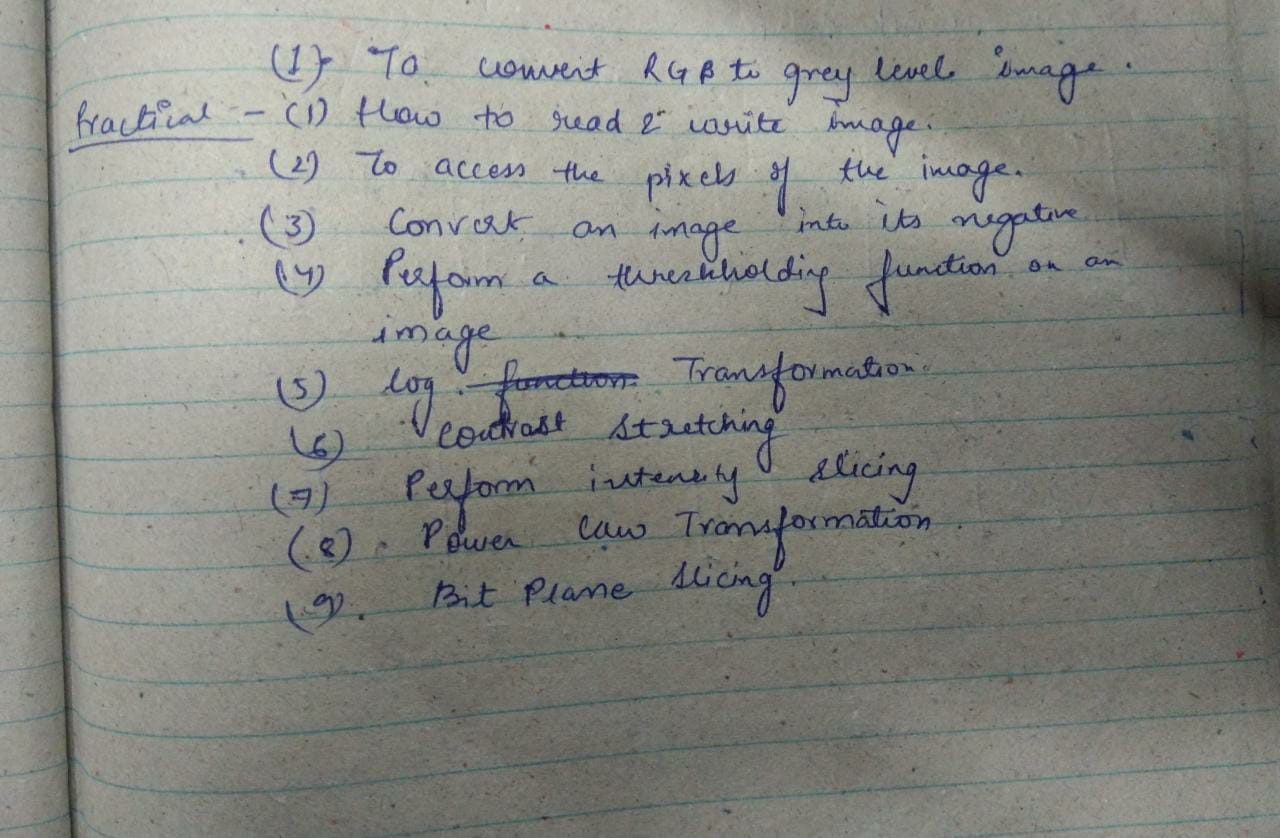 (1) To convert RGB to grey level image.
Practical - (1) How to read & write image.
(2) To access the pixels of the image.
(3) Convert an image into its negative
(4) Perform a threshholding function on an
image
(5) log function Transformation.
(6) Contrast stretching
(7) Perform intensity slicing
(8) Power law Transformation.
(9). Bit Plane slicing.